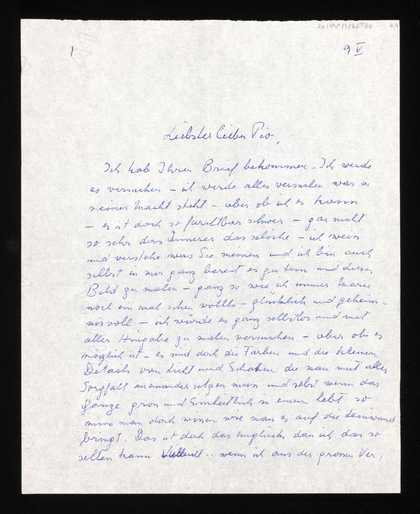 1
9 V
Liebster lieber Pio,
Ich hab Ihren Brief bekommen. Ich werde
es versuchen – ich werde alles versuchen was in
meiner Macht steht – aber ob ich es kann
– es ist doch so furchtbar schwer – gar nicht
so sehr das Innere das seelische – ich weiss
und verstehe was Sie meinen und ich bin auch
selbst in mir ganz bereit es zu tun und dieses
Bild zu malen – ganz so wie ich immer
noch ein mal sehen wollte – glücklich und geheim-
nisvoll – ich würde es ganz selbstlos und mit
aller Hingabe zu malen versuchen – aber ob es
möglich ist – es sind doch die Farben und die kleinen
Details von Licht und Schatten die man mit aller
Sorgfalt aneinander setzen muss und selbst wenn das
Ganze gross und Einheitlich in einem lebt so
muss man doch wissen wie man es auf die Leinwand
bringt. Das ist doch das Unglück dass ich das so
selten kann. Vielleicht .. wenn ich aus der grossen Ver,